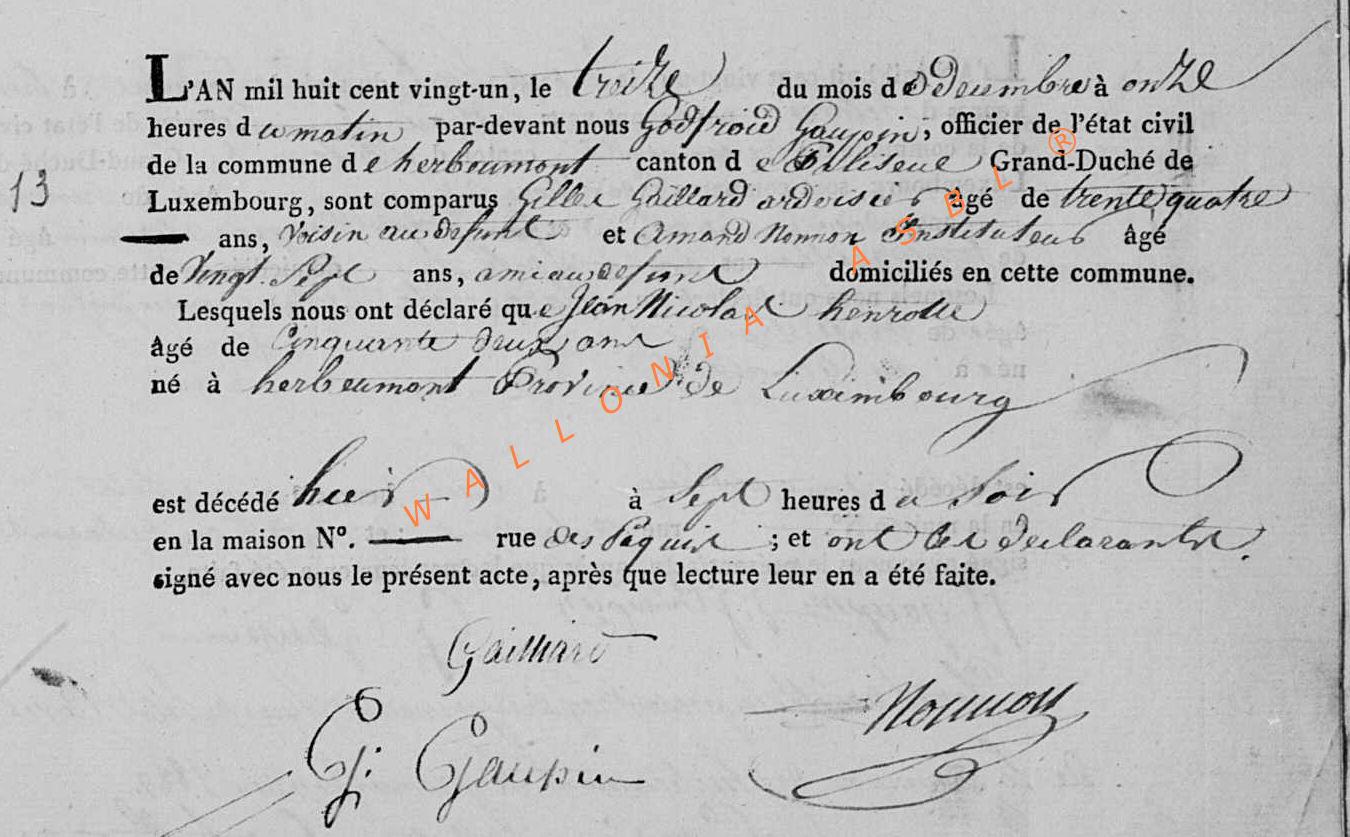 L'AN mil huit cent vingt-un, le treize du mois de Decembre à onze
heures du matin par-devant nous Godfroid Gaupin, officier de l'état civil
de la commune de herbeumont canton de Paliseul Grand-Duché de
13
Luxembourg, sont comparus Gilles Gaillard ardoisier âgé de trente quatre
ans, Voisin au defunt et Amand Nonnon Instituteur âgé
de Vingt Sept ans, ami au defunt domiciliés en cette commune.
Lesquels nous ont déclaré que Jean Nicolas henrotte
âgé de Cinquante deux ans
né à herbeumont Province de Luxembourg
est décédé hier à Sept heures du Soir
en la maison N°. rue des Paquis ; et ont les declarants
signé avec nous le présent acte, après que lecture leur en a été faite.
Gailliard
G. Gaupin
Nonnon
WALLONIA ASBL ®